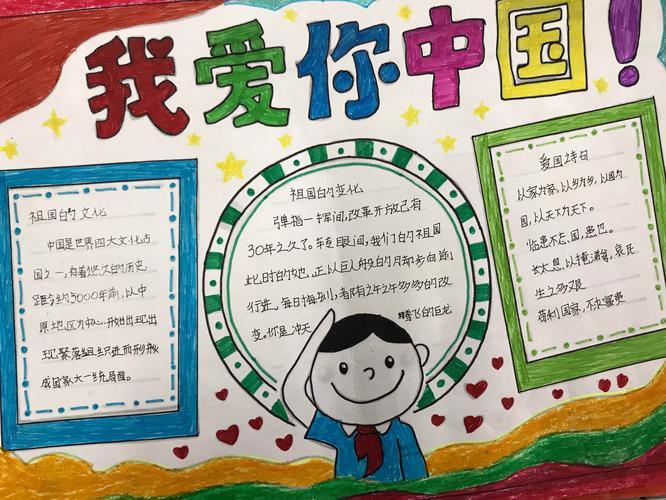 我爱你中国！
祖国的文化
中国是世界四大文化占
国之一,有着悠久的历史
距今约5000年前,以中
原地区为中心,开始出现出
现聚落组织进而形
成国家大一统局面。
祖国的变化
弹指一挥间,改革开放已有
30年之久了。转眼间,我们的祖国
此时的她,正以巨人般的脚步向前
行进,每日每刻,都有这样多多的改
变。你是冲天
腾飞的巨龙
爱国诗句
以家为家,以乡为乡,以国为
国,以天下为天下。
临患不忘国,忠也。
长太息以掩涕兮,哀民
生之多艰
苟利国家,不求富贵